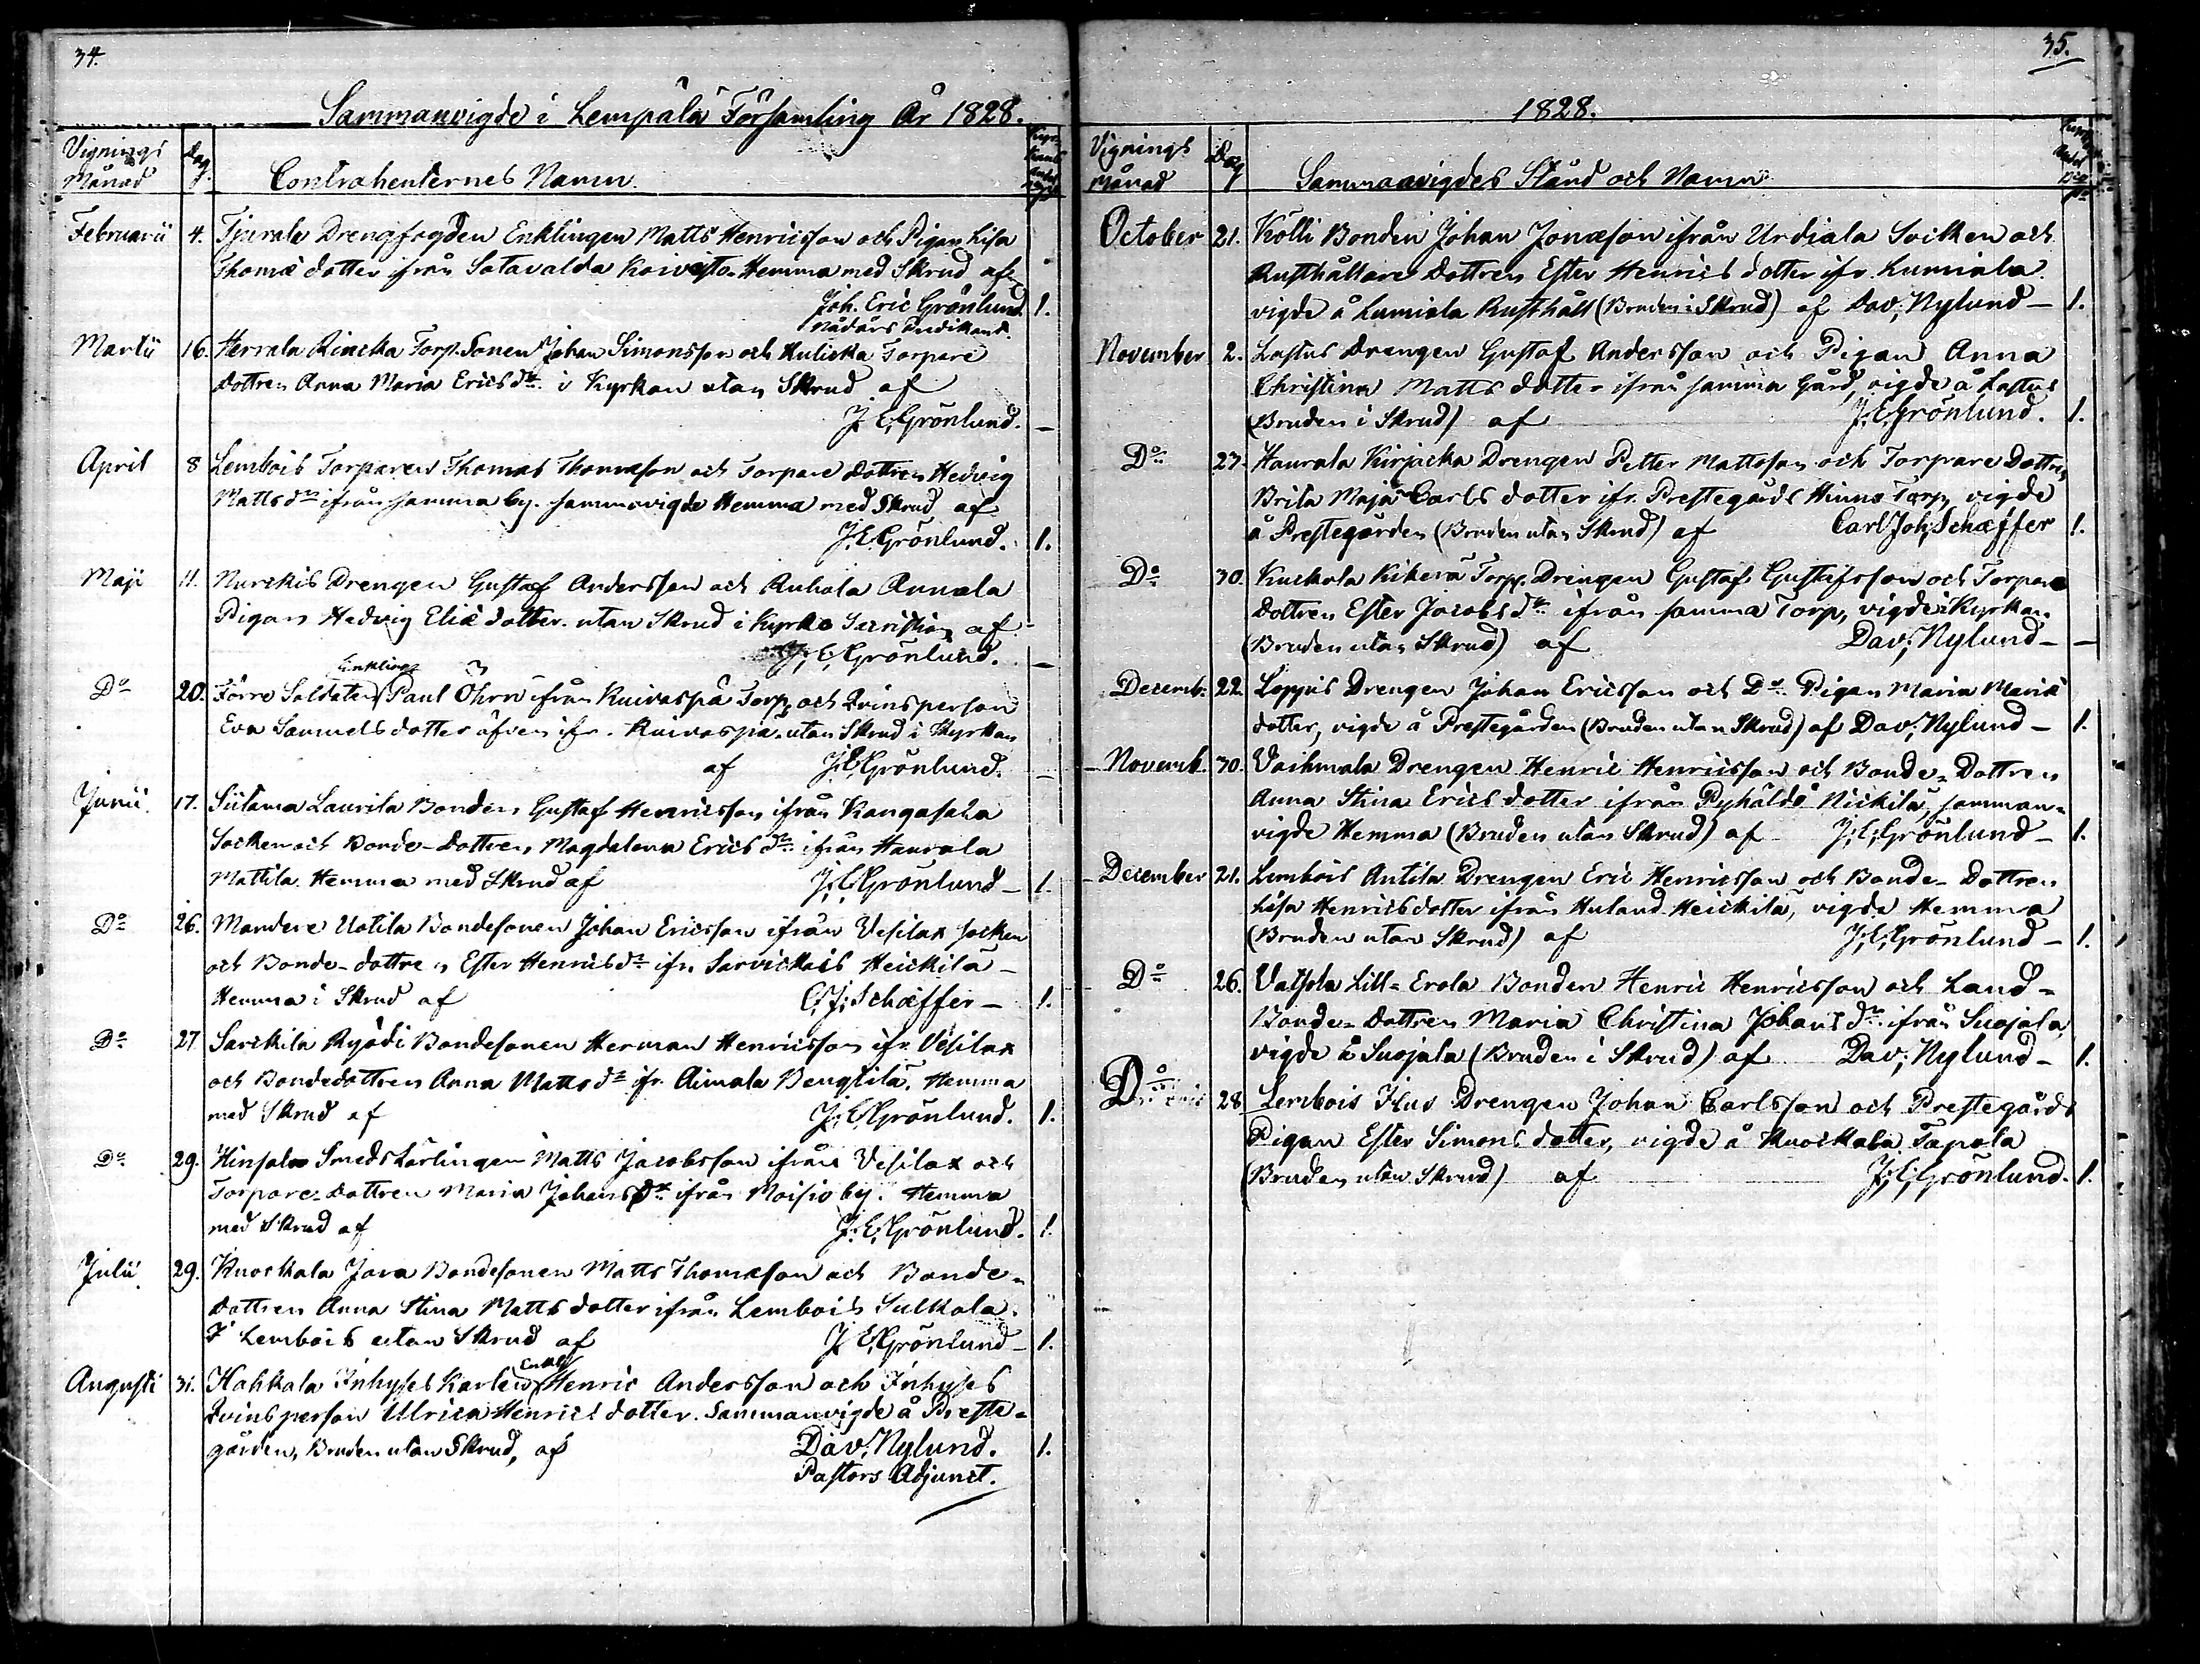 34.
Sammanvigde i Lempälä Församling År 1828.
Vignings Månad
Dag.
Contrahenternes Namn.
Februarii 4. Tjurala Drengfogden Enklingen Matts Henricsson och Pigan Lisa
Thomæ dotter ifrån Sotavalda Koivisto. Hemma med Skrud af
Joh. Eric Grönlund. 1.
Nådårs Predikant.
Martii 16. Herrala Rincka Torp. Sonen Johan Simonsson och Kulicka Torpare
Dottren Anna Maria Erics dr. i Kyrkan utan Skrud af
J. E. Grönlund. —
April 8 Lembois Torparen Thomas Thomæson och Torpare dottren Hedvig
Matts dr ifrån samma by. sammavigde Hemma med Skrud af
J. E. Grönlund. 1.
Maji 11. Nurckis Drengen Gustaf Andersson och Kuhala Annala
Pigan Hedvig Eliæ dotter. utan Skrud i Kyrko Sacristian af
J. E. Grönlund. —
Enkling
Do 20. Förre Soldaten Paul Öhrn ifrån Kuivaspä Torp, och Qvinsperson
Eva Samuels dotter äfven ifr. Kuivaspä. utan Skrud i Kyrkan
af J. E. Grönlund. —
Junii 17. Siitama Laurila Bonden Gustaf Henricsson ifrån Kangasala
Socken och Bonde-Dottren Magdalena Erics dr. ifrån Haurala
Mattila. Hemma med Skrud af J. E. Grönlund — 1.
Do 26. Mandere Uotila Bondesonen Johan Ericsson ifrån Vesilax socken
och Bonde-dottren Ester Henrics dr ifr. Sarvickais Heickilä —
Hemma i Skrud af C. J. Schæffer — 1.
Do 27 Sarckila Ryödi Bondesonen Herman Henricsson ifr. Vesilax
och Bondedottren Anna Matts dr ifr. Aimala Bengtilä, Hemma
med Skrud af J. E. Grönlund. 1.
Do 29. Hinsala Smeds Lärlingen Matts Jacobsson ifrån Vesilax och
Torpare-Dottren Maria Johans Dr ifrån Moisio by. Hemma
med Skrud af J. E. Grönlund. 1.
Julii 29. Kuockala Java Bondesonen Matts Thomæson och Bonde-
Dottren Anna Stina Matts dotter ifrån Lembois Sulkola.
I Lembois utan Skrud af J. E. Grönlund — 1.
Enkl.
Augusti 31. Hahkala Inhyses Karlen Henric Andersson och Inhyses
Qvinsperson Ulrica Henrics dotter. Sammanvigde å Preste-
gården, Bruden utan Skrud, af Dav; Nylund. 1.
Pastors Adjunct.
35.
1828.
Vignings Månad
Dag
Sammanvigdes Stånd och Namn
October 21. Kölli Bonden Johan Jonæson ifrån Urdiala Socken och
Rusthållare Dottren Ester Henrics dotter ifr. Lumiala
vigde å Lumiala Rusthåll (Bruden i Skrud) af Dav; Nylund — 1.
November 2. Lastus Drengen Gustaf Andersson och Pigan Anna
Christina Matts dotter ifrån samma Gård, vigde å Lastus
(Bruden i Skrud) af J. E. Grönlund. 1.
Do 23. Haurala Kirjacka Drengen Petter Mattsson och Torpare Dottren
Brita Maja Carls dotter ifr. Prestegårds Hinno Torp, vigde
å Prestegården (Bruden utan Skrud) af Carl Joh; Schæffer 1.
Do 30. Kuckola Kikerä Torp. Drengen Gustaf Gustafsson och Torpare
Dottren Ester Jacobs dr. ifrån samma Torp, vigde i Kyrkan
(Bruden utan Skrud) af Dav; Nylund — —
Decemb. 22. Loppis Drengen Johan Ericsson och Do Pigan Maria Mariæ
dotter, vigde å Prestegården (Bruden utan Skrud) af Dav; Nylund — 1.
Novemb. 30. Vaihmala Drengen Henric Henricsson och Bonde-Dottren
Anna Stina Erics dotter ifrån Pyhäldö Nickilä, samman-
vigde Hemma (Bruden utan Skrud) af J; E; Grönlund — 1.
December 21. Lembois Antila Drengen Eric Henricsson och Bonde-Dottren
Lisa Henricsdotter ifrån Huland Heickilä, vigde Hemma
(Bruden utan Skrud) af J; E; Grönlund — 1.
Do 26. Vatsola Lill-Erola Bonden Henric Henricsson och Land-
Bonde-Dottren Maria Christina Johans dr. ifrån Suojala,
vigde å Suojala (Bruden i Skrud) af Dav; Nylund — 1.
Do 28 Lembois Hus Drengen Johan Carlsson och Prestegårds
Pigan Ester Simons dotter, vigde å Kuockala Tapola
(Bruden utan Skrud) af J; E; Grönlund. 1.